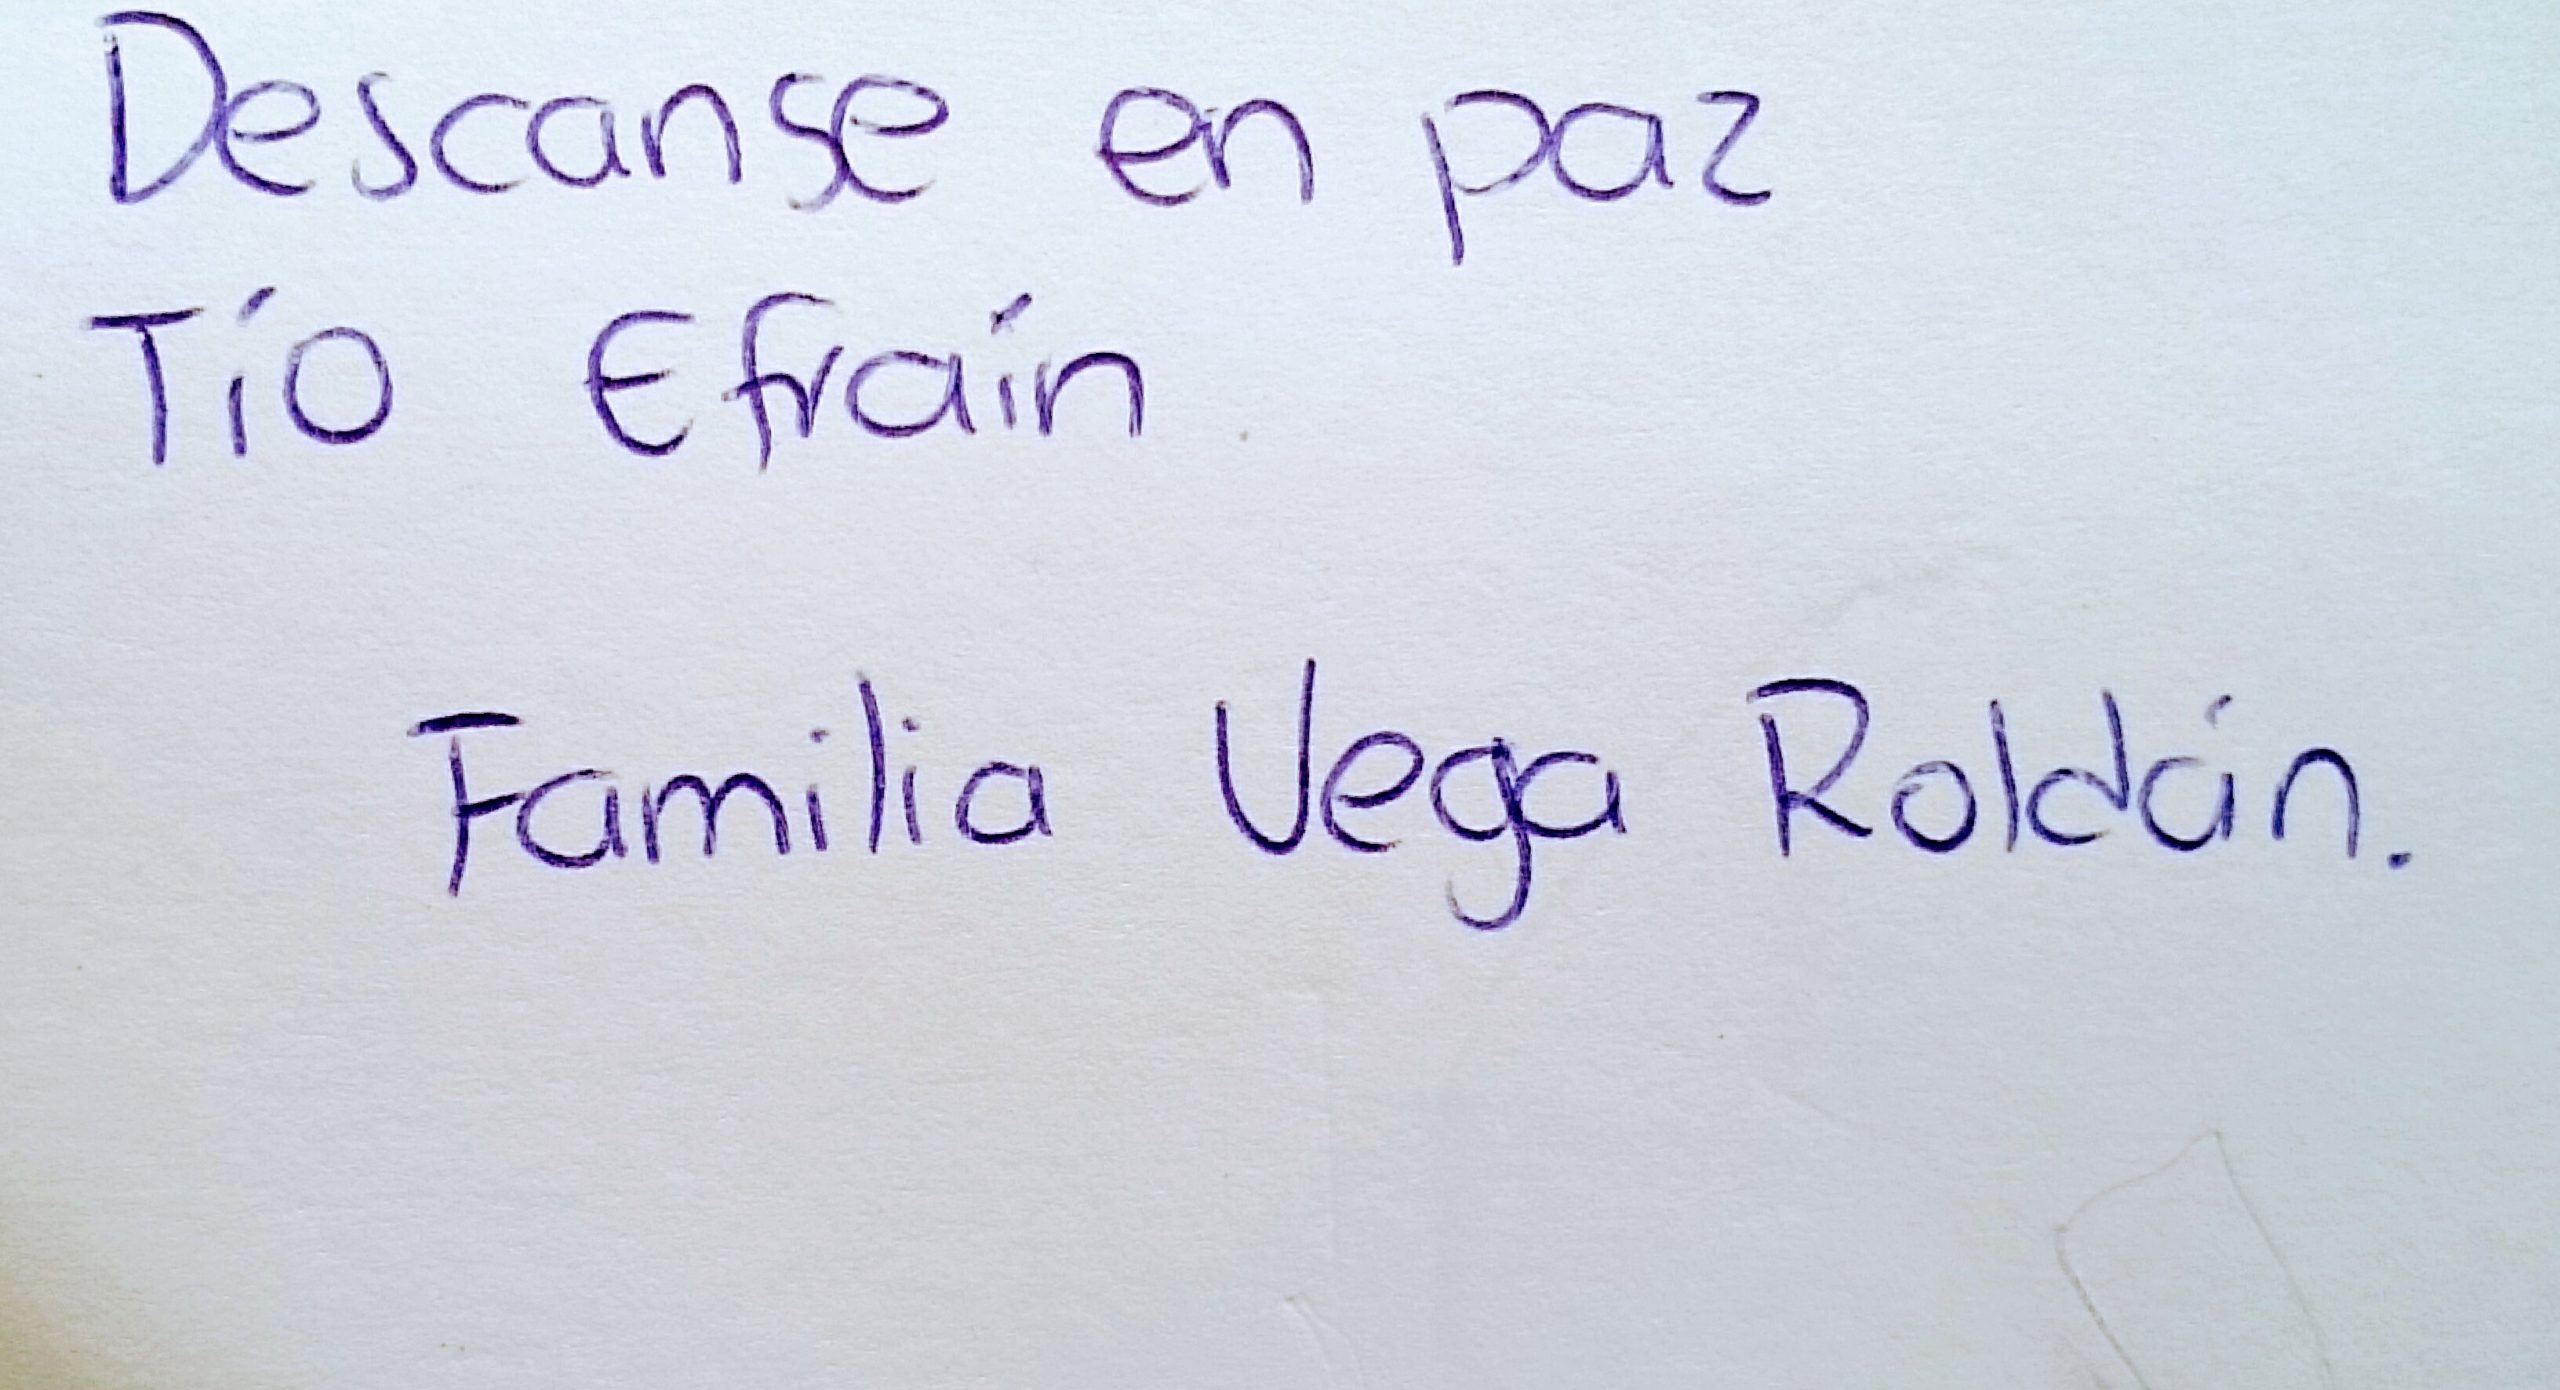 Descanse en paz
Tío Efraín
Familia Vega Roldán.